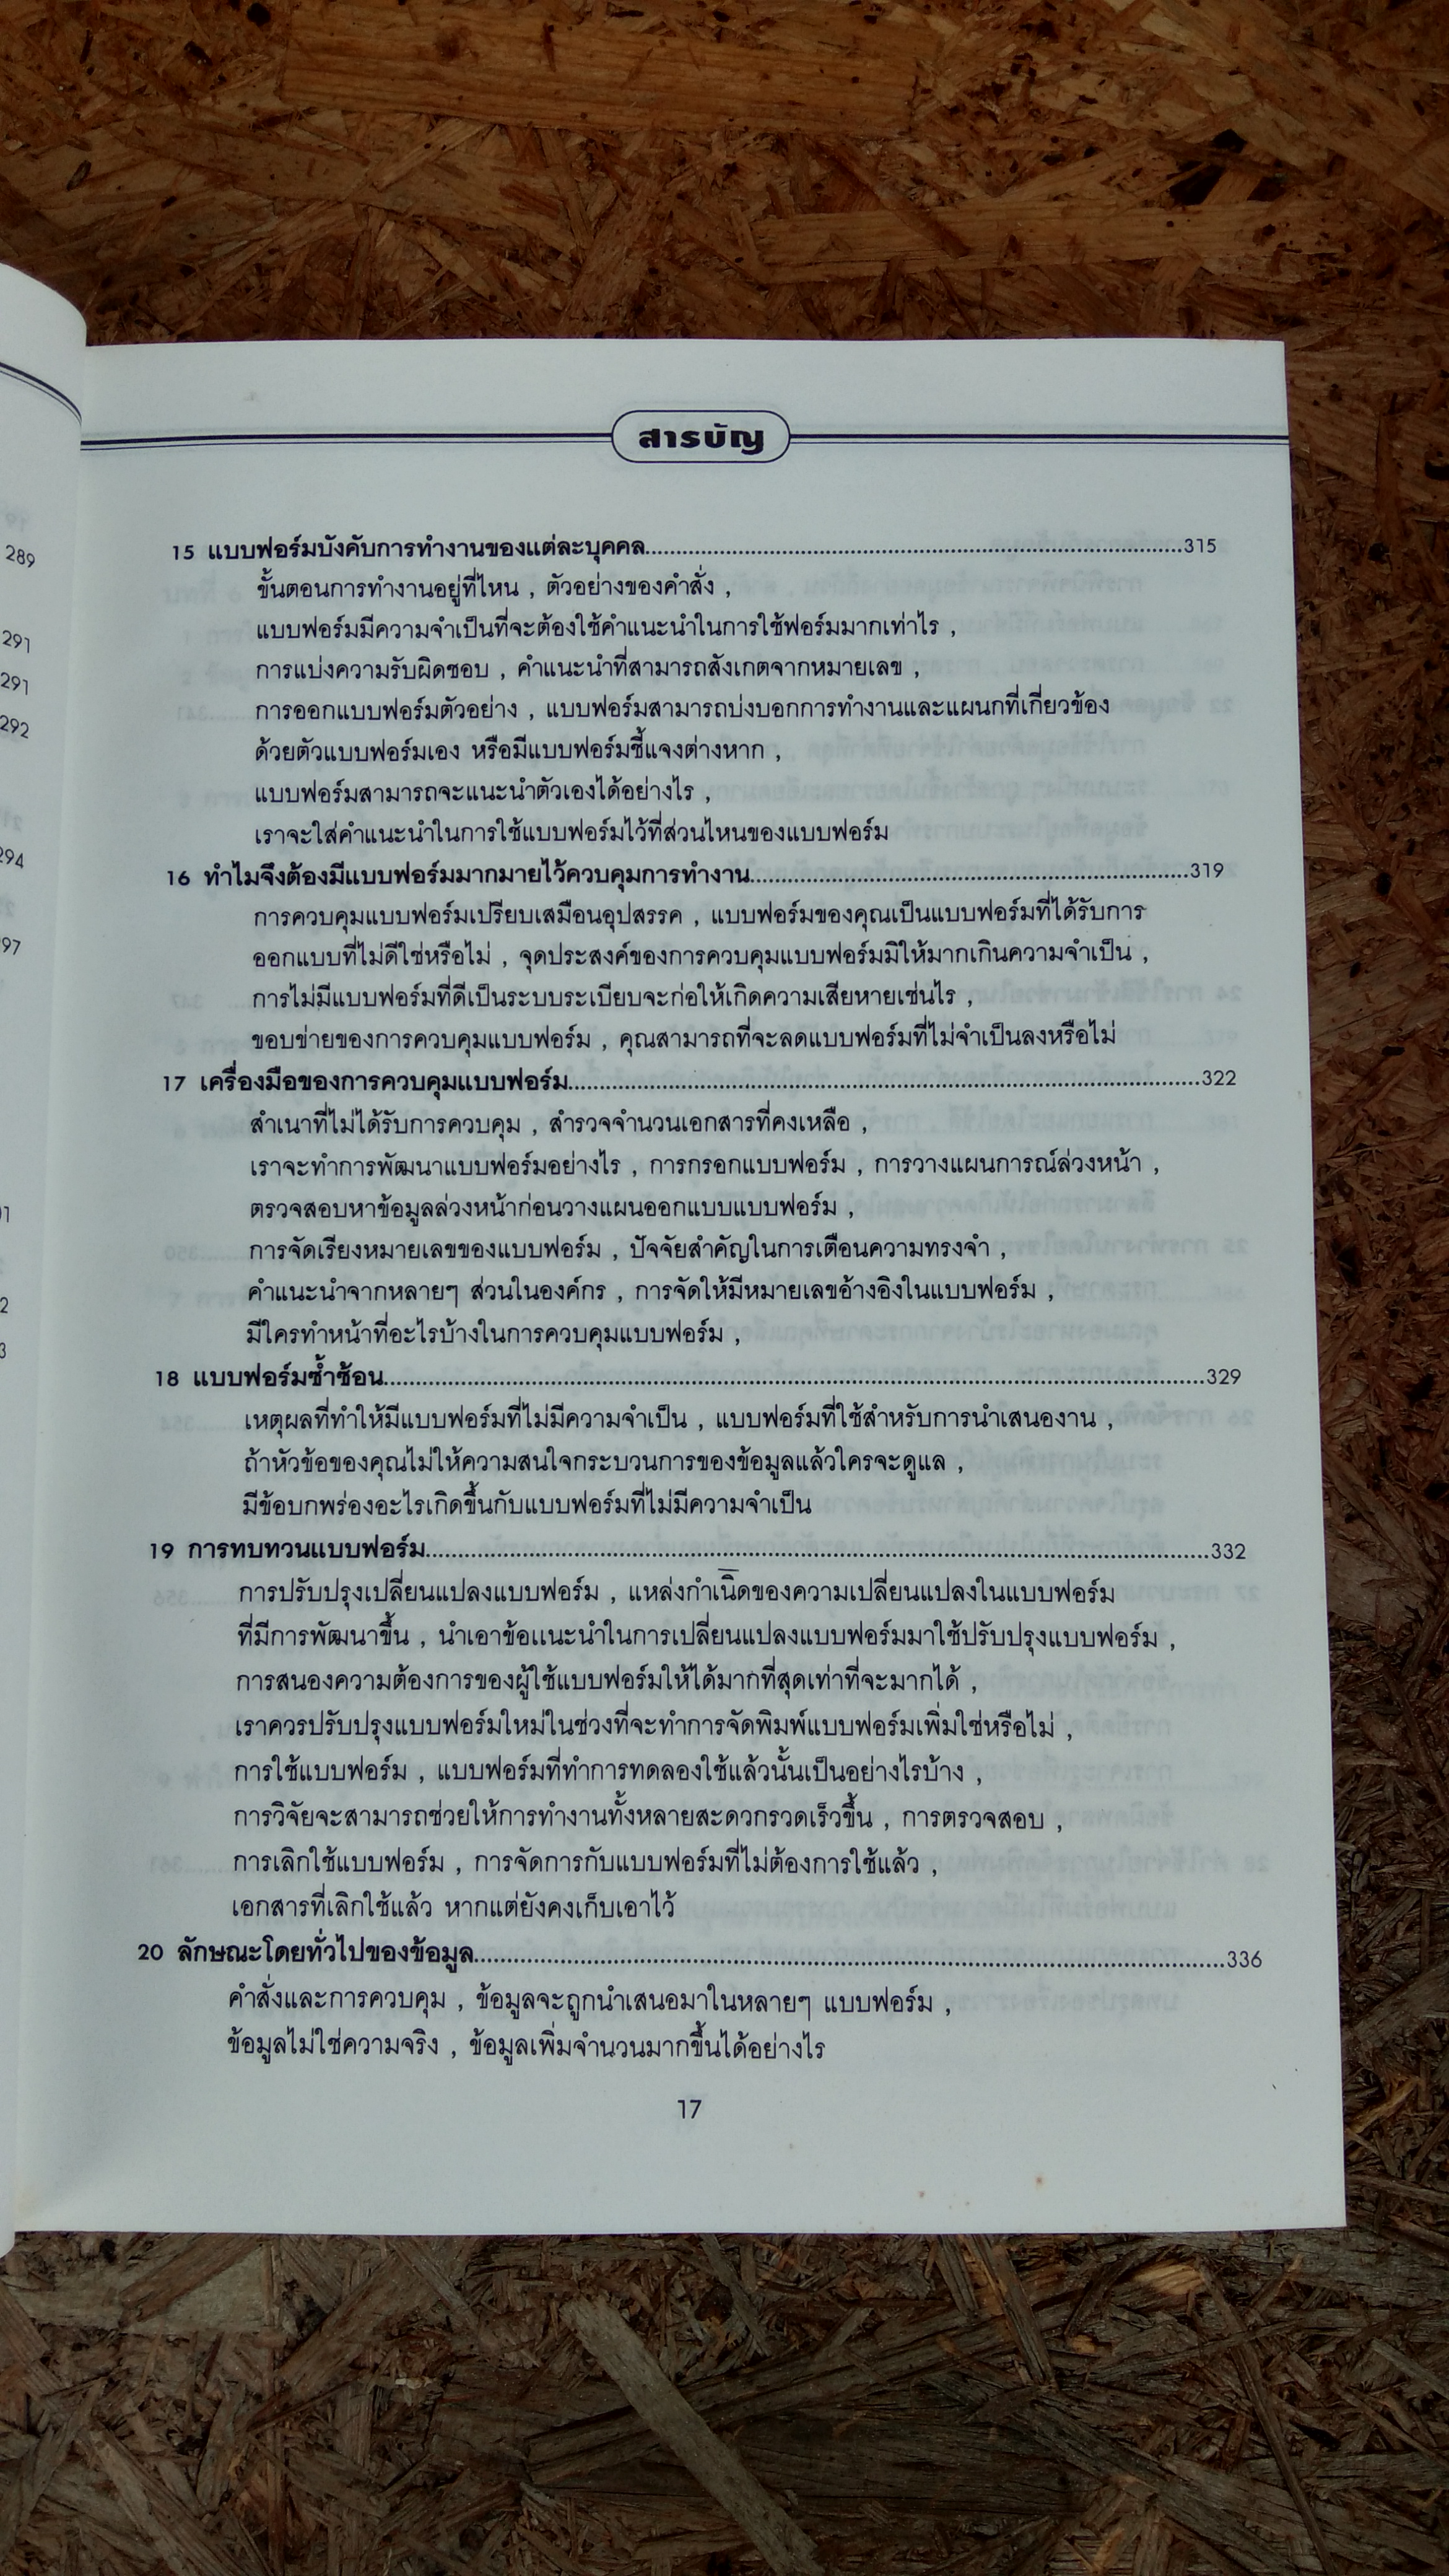 สารบัญ
15 แบบฟอร์มบังคับการทำงานของแต่ละบุคคล....................315
ขั้นตอนการทำงานอยู่ที่ไหน , ตัวอย่างของคำสั่ง ,
แบบฟอร์มมีความจำเป็นที่จะต้องใช้คำแนะนำในการใช้ฟอร์มมากเท่าไร ,
การแบ่งความรับผิดชอบ , คำแนะนำที่สามารถสังเกตจากหมายเลข ,
การออกแบบฟอร์มตัวอย่าง , แบบฟอร์มสามารถบ่งบอกการทำงานและแผนกที่เกี่ยวข้อง
ด้วยตัวแบบฟอร์มเอง หรือมีแบบฟอร์มชี้แจงต่างหาก ,
แบบฟอร์มสามารถจะแนะนำตัวเองได้อย่างไร ,
เราจะใส่คำแนะนำในการใช้แบบฟอร์มไว้ที่ส่วนไหนของแบบฟอร์ม
16 ทำไมจึงต้องมีแบบฟอร์มมากมายไว้ควบคุมการทำงาน....................319
การควบคุมแบบฟอร์มเปรียบเสมือนอุปสรรค , แบบฟอร์มของคุณเป็นแบบฟอร์มที่ได้รับการ
ออกแบบที่ไม่ดีใช่หรือไม่ , จุดประสงค์ของการควบคุมแบบฟอร์มมิให้มากเกินความจำเป็น ,
การไม่มีแบบฟอร์มที่ดีเป็นระบบระเบียบจะก่อให้เกิดความเสียหายเช่นไร ,
ขอบข่ายของการควบคุมแบบฟอร์ม , คุณสามารถที่จะลดแบบฟอร์มที่ไม่จำเป็นลงหรือไม่
17 เครื่องมือของการควบคุมแบบฟอร์ม....................322
สำเนาที่ไม่ได้รับการควบคุม , สำรวจจำนวนเอกสารที่คงเหลือ ,
เราจะทำการพัฒนาแบบฟอร์มอย่างไร , การกรอกแบบฟอร์ม , การวางแผนการณ์ล่วงหน้า ,
ตรวจสอบหาข้อมูลล่วงหน้าก่อนวางแผนออกแบบแบบฟอร์ม ,
การจัดเรียงหมายเลขของแบบฟอร์ม , ปัจจัยสำคัญในการเตือนความทรงจำ ,
คำแนะนำจากหลายๆ ส่วนในองค์กร , การจัดให้มีหมายเลขอ้างอิงในแบบฟอร์ม ,
มีใครทำหน้าที่อะไรบ้างในการควบคุมแบบฟอร์ม ,
18 แบบฟอร์มซ้ำซ้อน....................329
เหตุผลที่ทำให้มีแบบฟอร์มที่ไม่มีความจำเป็น , แบบฟอร์มที่ใช้สำหรับการนำเสนองาน ,
ถ้าหัวข้อของคุณไม่ให้ความสนใจกระบวนการของข้อมูลแล้วใครจะดูแล ,
มีข้อบกพร่องอะไรเกิดขึ้นกับแบบฟอร์มที่ไม่มีความจำเป็น
19 การทบทวนแบบฟอร์ม....................332
การปรับปรุงเปลี่ยนแปลงแบบฟอร์ม , แหล่งกำเนิดของความเปลี่ยนแปลงในแบบฟอร์ม
ที่มีการพัฒนาขึ้น , นำเอาข้อแนะนำในการเปลี่ยนแปลงแบบฟอร์มมาใช้ปรับปรุงแบบฟอร์ม ,
การสนองความต้องการของผู้ใช้แบบฟอร์มให้ได้มากที่สุดเท่าที่จะมากได้ ,
เราควรปรับปรุงแบบฟอร์มใหม่ในช่วงที่จะทำการจัดพิมพ์แบบฟอร์มเพิ่มใช่หรือไม่ ,
การใช้แบบฟอร์ม , แบบฟอร์มที่ทำการทดลองใช้แล้วนั้นเป็นอย่างไรบ้าง ,
การวิจัยจะสามารถช่วยให้การทำงานทั้งหลายสะดวกรวดเร็วขึ้น , การตรวจสอบ ,
การเลิกใช้แบบฟอร์ม , การจัดการกับแบบฟอร์มที่ไม่ต้องการใช้แล้ว ,
เอกสารที่เลิกใช้แล้ว หากแต่ยังคงเก็บเอาไว้
20 ลักษณะโดยทั่วไปของข้อมูล....................336
คำสั่งและการควบคุม , ข้อมูลจะถูกนำเสนอมาในหลายๆ แบบฟอร์ม ,
ข้อมูลไม่ใช่ความจริง , ข้อมูลเพิ่มจำนวนมากขึ้นได้อย่างไร
17
289
291
291
292
294